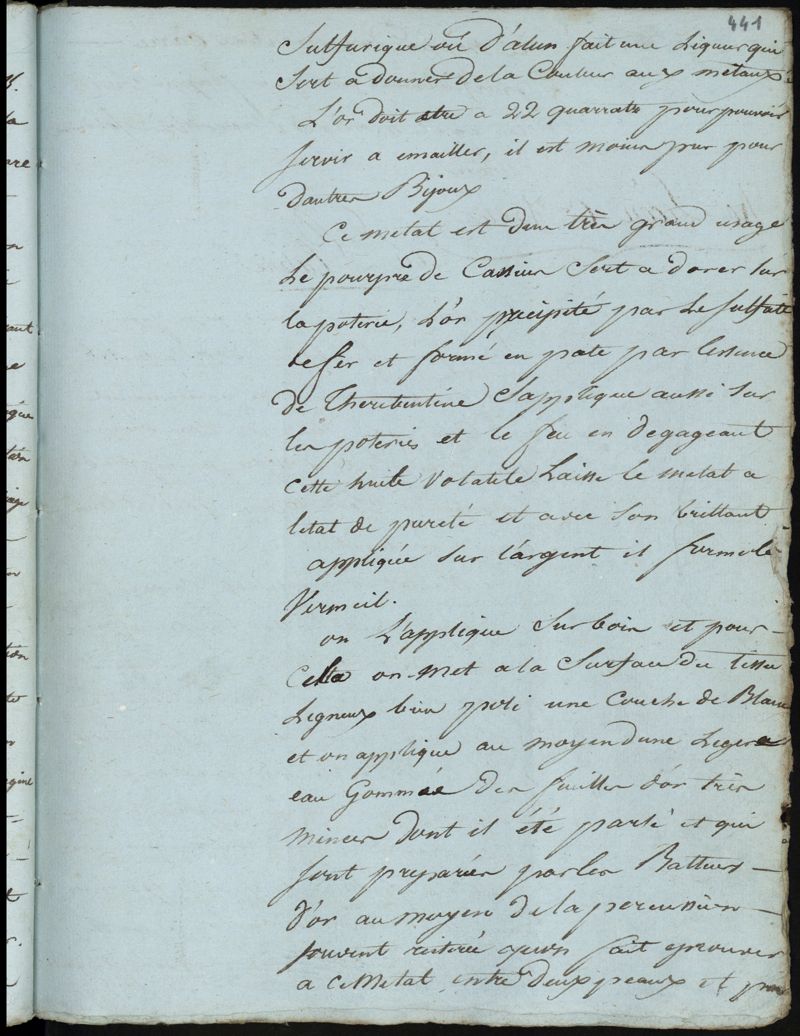 441
Sulfurique ou d'alun fait une Liqueur qui
Sert a donner de la Couleur aux metaux
L'or doit etre a 22 quarrats pour pouvoir
servir a emailler, il est moins pur pour
dautres Bijoux
Ce metal est dun très grand usage
Le pourpre de Cassius Sert a dorer sur
la poterie, L'or précipité par le sulfate
de fer et formé en pate par lessence
de Therebentine S'applique aussi sur
les poteries et le feu en degageant
cette huile Volatile Laisse le metal a
letat de pureté et avec son brillant
appliquée sur l'argent il forme le
Vermeil.
on L'applique Sur bois et pour
Cella on met a la Surface du tissu
Ligneux bien poli une Couche de Blanc
et on applique au moyen dune Legere
eau Gommée des feuilles d'or très
minces dont il été parlé et qui
sont preparées par les Batteurs
d'or au moyen de la percussion
souvent qu'on fait eprouver
a ce Metal entre deux peaux et